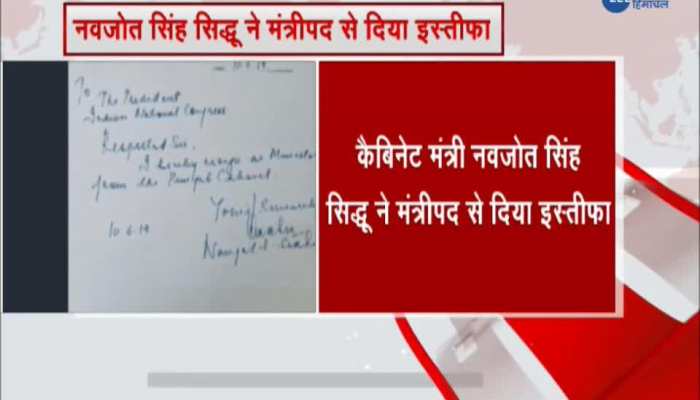 ZEE
हिमाचल
नवजोत सिंह सिद्धू ने मंत्रीपद से दिया इस्तीफा
10.6.19
To
The President
Indian National Congress
Respected Sir,
I hereby resign as Minister
from the Punjab Cabinet.
Yours Sincerely
10.6.19
कैबिनेट मंत्री नवजोत सिंह
सिद्धू ने मंत्रीपद से दिया इस्तीफा